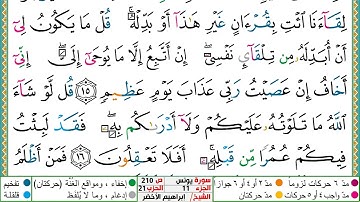 لِقَآءَنَا ٱئْتِ بِقُرْءَانٍ غَيْرِ هَٰذَآ أَوْ بَدِّلْهُ ۚ قُلْ مَا يَكُونُ لِىٓ
أَنْ أُبَدِّلَهُۥ مِن تِلْقَآئِ نَفْسِىٓ ۖ إِنْ أَتَّبِعُ إِلَّا مَا يُوحَىٰٓ إِلَىَّ ۖ إِنِّىٓ
أَخَافُ إِنْ عَصَيْتُ رَبِّى عَذَابَ يَوْمٍ عَظِيمٍ ١٥ قُل لَّوْ شَآءَ
ٱللَّهُ مَا تَلَوْتُهُۥ عَلَيْكُمْ وَلَآ أَدْرَىٰكُم بِهِۦ ۖ فَقَدْ لَبِثْتُ
فِيكُمْ عُمُرًا مِّن قَبْلِهِۦٓ ۚ أَفَلَا تَعْقِلُونَ ١٦ فَمَنْ أَظْلَمُ
مد ٦ حركات لزوما مد ٢ أو ٤ أو ٦ جوازا
مد واجب ٤ أو ٥ حركات مد حركتان
سورة يونس ص 210
الجزء 11 الحزب 21
الشيخ/ ابراهيم الأخضر
إخفاء، ومواقع الغنة (حركتان)
إدغام، وما لا يُلفظ
تفخيم
قلقلة